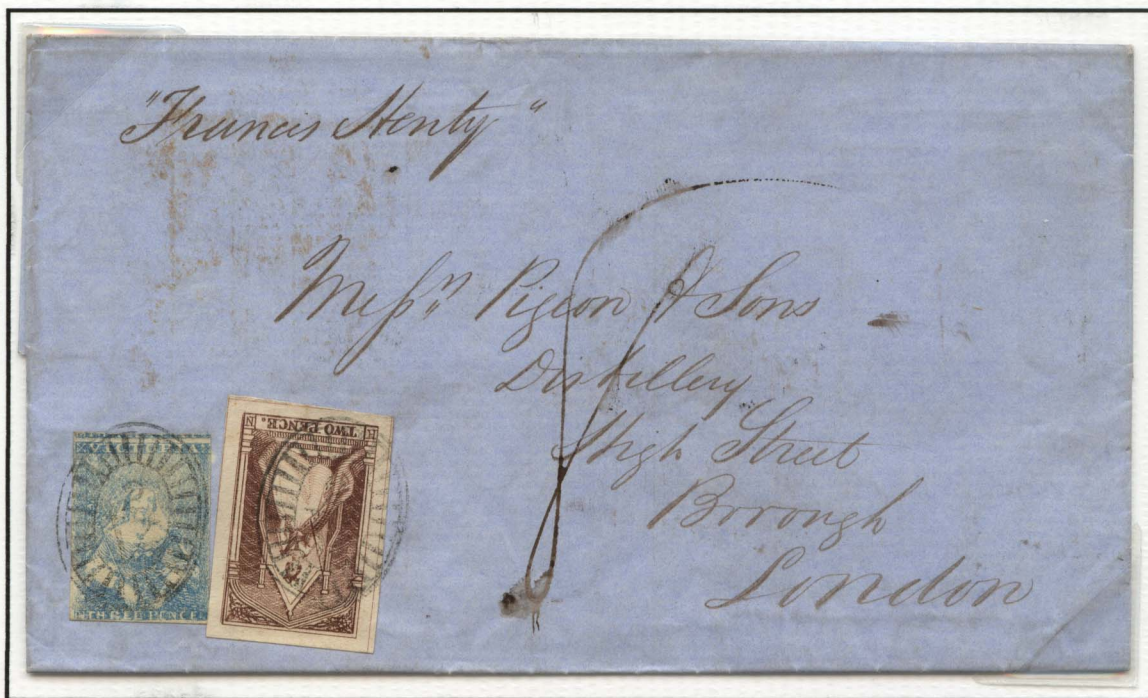 "Francis Henty"
Messrs Pigeon & Sons
Distillery
High Street
Borough
London
TWO PENCE.
THREE PENCE